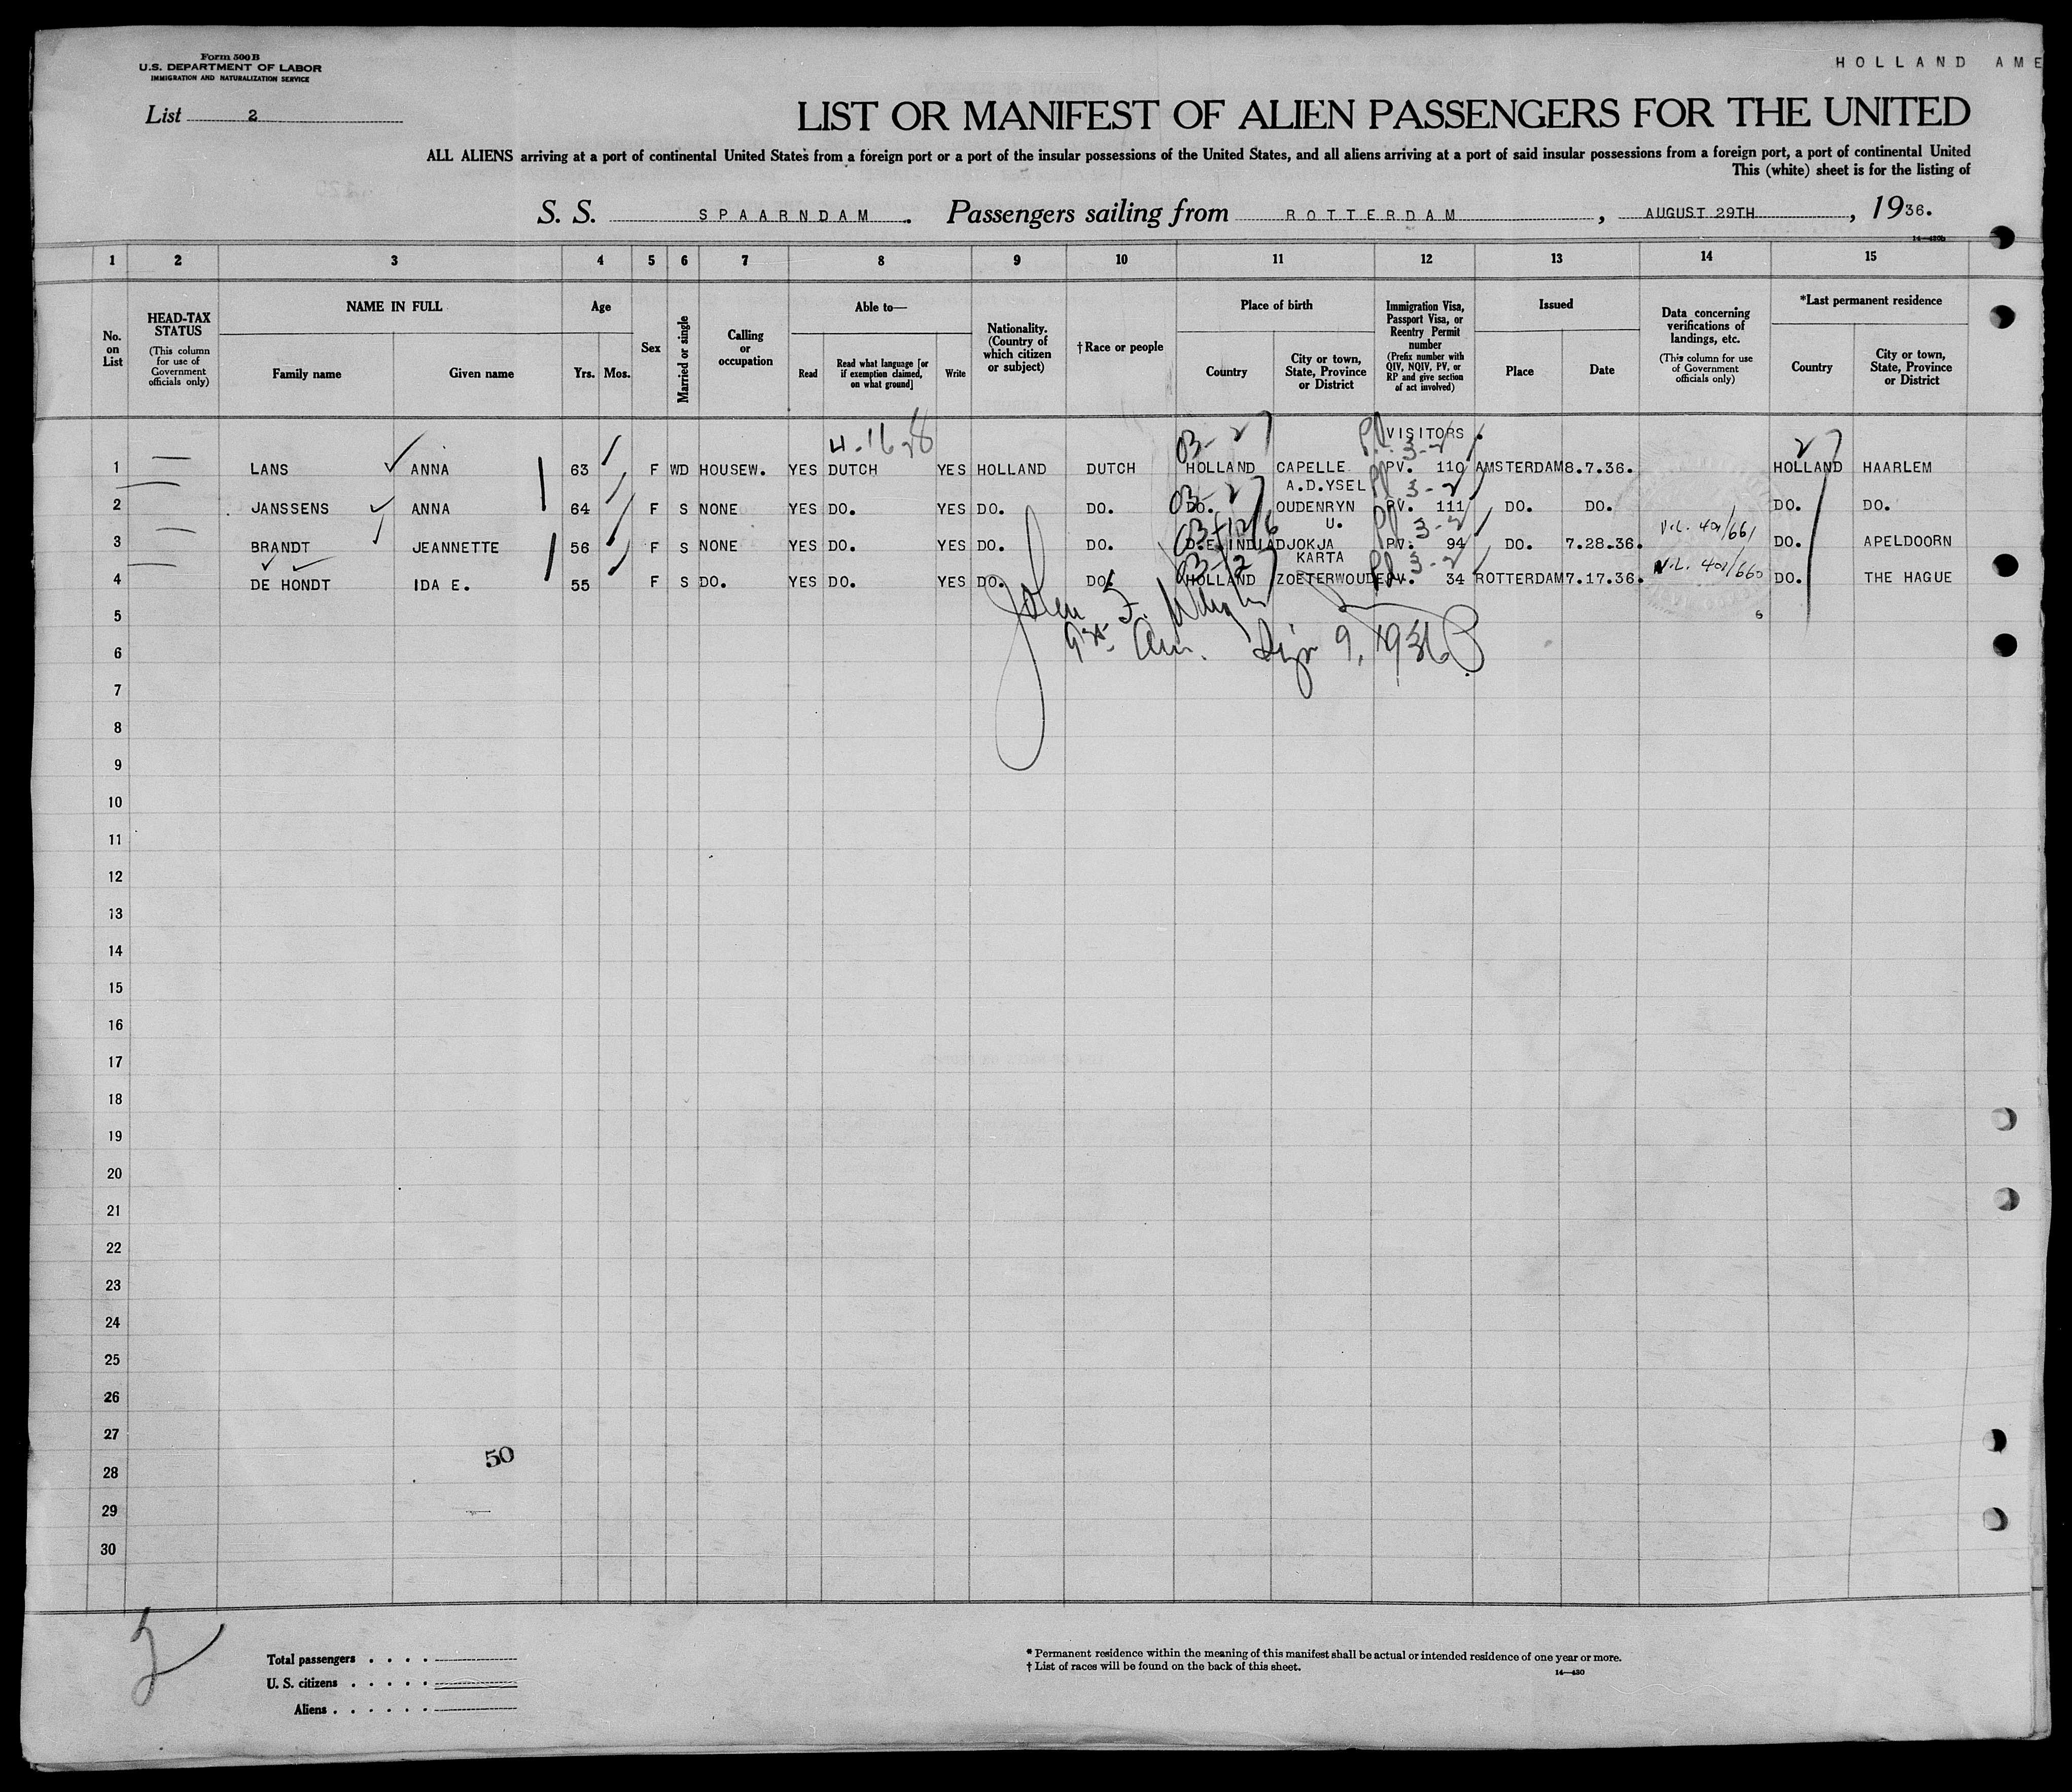 Form 500 B
U.S. DEPARTMENT OF LABOR
IMMIGRATION AND NATURALIZATION SERVICE
HOLLAND AME
List 2
LIST OR MANIFEST OF ALIEN PASSENGERS FOR THE UNITED
ALL ALIENS arriving at a port of continental United States from a foreign port or a port of the insular possessions of the United States, and all aliens arriving at a port of said insular possessions from a foreign port, a port of continental United
This (white) sheet is for the listing of
S. S. SPAARNDAM. Passengers sailing from ROTTERDAM, AUGUST 29TH, 1936.
14—430b
1 2 3 4 5 6 7 8 9 10 11 12 13 14 15
No. on List
HEAD-TAX STATUS
(This column for use of Government officials only)
NAME IN FULL
Family name Given name
Age
Yrs. Mos.
Sex
Married or single
Calling or occupation
Able to—
Read Read what language [or if exemption claimed, on what ground] Write
Nationality. (Country of which citizen or subject)
†Race or people
Place of birth
Country City or town, State, Province or District
Immigration Visa, Passport Visa, or Reentry Permit number
(Prefix number with QIV, NQIV, PV, or RP and give section of act involved)
Issued
Place Date
Data concerning verifications of landings, etc.
(This column for use of Government officials only)
*Last permanent residence
Country City or town, State, Province or District
4-16 28 03-27 VISITORS. 27
PV 3-2
1 LANS ANNA 63 F WD HOUSEW. YES DUTCH YES HOLLAND DUTCH HOLLAND CAPELLE PV. 110 AMSTERDAM 8.7.36. HOLLAND HAARLEM
A.D.YSEL
03-27 PV 3-2
2 JANSSENS ANNA 64 F S NONE YES DO. YES DO. DO. DO. OUDENRYN PV. 111 DO. DO. DO. DO.
U.
PV 3-2 401/661
3 BRANDT JEANNETTE 56 F S NONE YES DO. YES DO. DO. D.E.INDIA DJOKJA PV. 94 DO. 7.28.36. DO. APELDOORN
KARTA
03-27 PV 3-2 401/660
4 DE HONDT IDA E. 55 F S DO. YES DO. YES DO. DO. HOLLAND ZOETERWOUDE PV. 34 ROTTERDAM 7.17.36. DO. THE HAGUE
5 John F.
6 9, 1936
7
8
9
10
11
12
13
14
15
16
17
18
19
20
21
22
23
24
25
26
27
50
28
29
30
2
Total passengers
U. S. citizens
Aliens
* Permanent residence within the meaning of this manifest shall be actual or intended residence of one year or more.
† List of races will be found on the back of this sheet.
14—430